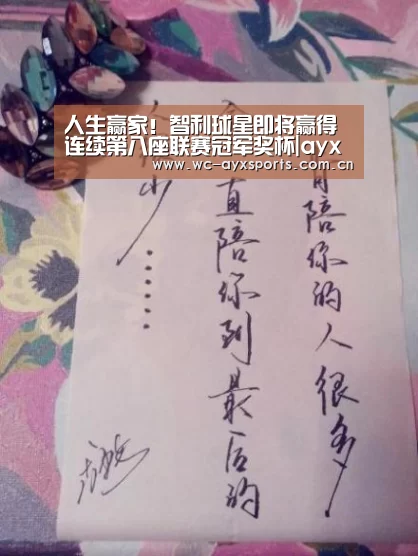 人生赢家！智利球星即将赢得
连续第八座联赛冠军奖杯|ayx
www.wc-ayxsports.com.cn
陪你的人很多，
直陪你到最后的